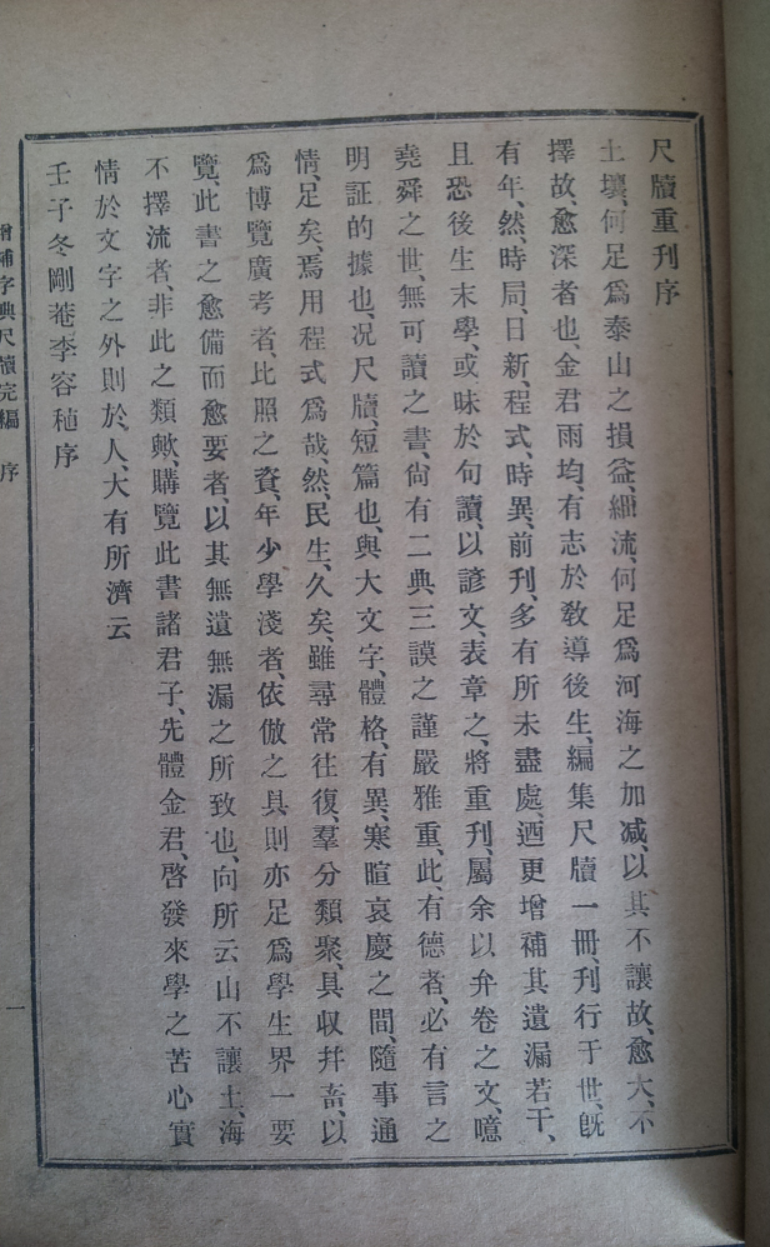 尺牘重刊序
土壤、何足爲泰山之損益、細流、何足爲河海之加减、以其不讓故、愈大、不
擇故、愈深者也、金君雨均、有志於敎導後生、編集尺牘一冊、刊行于世、旣
有年、然、時局、日新、程式、時異、前刊、多有所未盡處、迺更增補其遺漏若干、
且恐後生末學、或昧於句讀、以諺文、表章之、將重刊、屬余以弁卷之文、噫
堯舜之世、無可讀之書、尙有二典三謨之謹嚴雅重、此、有德者、必有言之
明証的據也、况尺牘、短篇也、與大文字、體格、有異、寒暄哀慶之間、隨事通
情、足矣、焉用程式爲哉、然、民生、久矣、雖尋常往復、羣分類聚、具収幷畜、以
爲博覽廣考者、比照之資、年少學淺者、依倣之具則亦足爲學生界一要
覽、此書之愈備而愈要者、以其無遺無漏之所致也、向所云山不讓土、海
不擇流者、非此之類歟、購覽此書諸君子、先體金君、啓發來學之苦心實
情於文字之外則於、人、大有所濟云
壬子冬剛菴李容稙序
增補字典尺牘完編 序 一